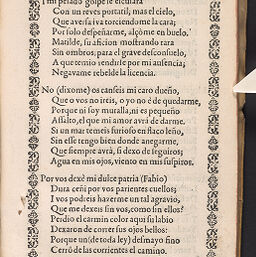 mi pesado golpe le escusara
Con un reves portatil, mas el cielo,
Que aversa iva torciendome la cara;
Por solo despeñarme, alçòme en buelo.
Matilde, su aficion mostrando rara
Sin ombros, para el grave desconsuelo,
A que temio rendirse por mi ausencia;
Negavame rebelde la licencia.
No (dixome) os canseis mi caro dueño,
Que o vos no iréis, o yo no è de quedarme,
Porque ni soy muralla, ni es pequeño
Assalto, el que mi amor avrà de darme.
Si un mar temeis furioso en flaco leño,
Sin esse tengo bien donde anegarme,
Que siempre avrà, si dexo de seguiros;
Agua en mis ojos, viento en mis suspiros.
Por vos dexè mi dulce patria (Fabio)
Dura ceñi por vos parientes cuellos;
I vos podreis hazerme un tal agravio,
Que me dexeis sin vos, como sin ellos?
Perdio el carmin color aqui su labio
Dexaron de correr sus ojos bellos:
Porque un (de toda ley) desmayo fino
Cerrò de las corrientes el camino.